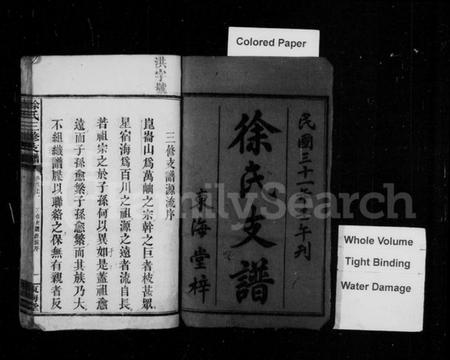 Colored Paper
民國三十一年壬午刊
徐氏支譜
東海堂梓
洪字號
三修支譜源流序
崑崙山爲萬岫之宗幹之巨者枝甚眾
星宿海爲百川之祖源之遠者流自長
若祖宗之於子孫何以異如是蓋祖愈
遠而子孫愈繁子孫愈繁而其族乃大
不組織譜牒以聯絡之保無有親者反
徐氏三修支譜
FamilySearch
Whole Volume
Tight Binding
Water Damage